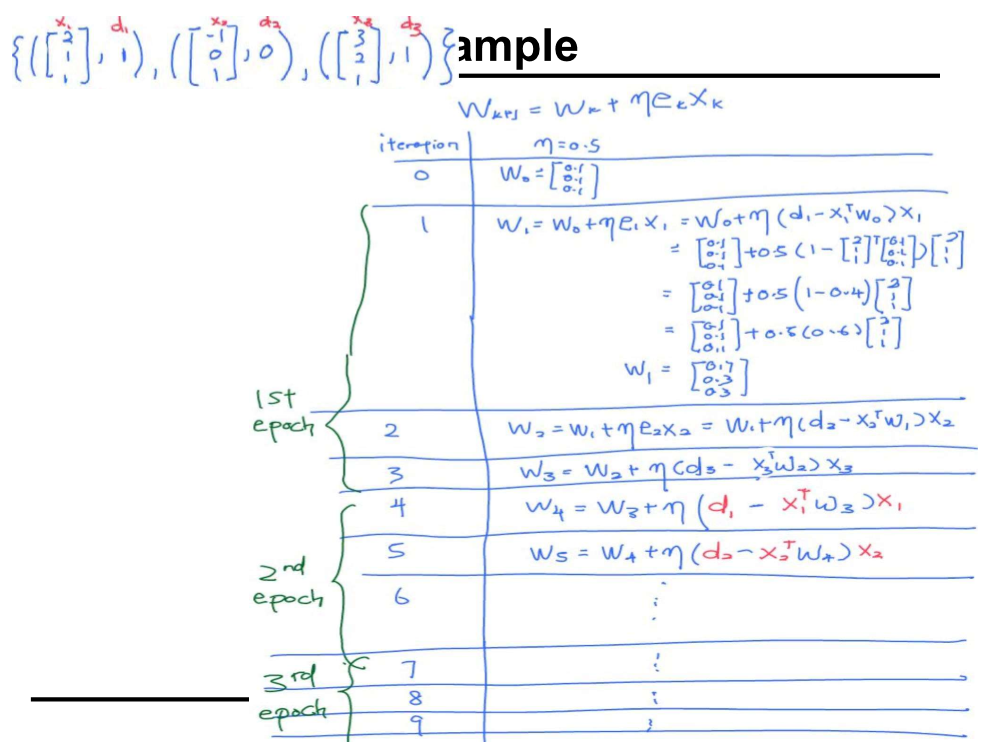 x₁ d₁ x₂ d₂ x₃ d₃
{([2 1 1], 1), ([-1 0 1], 0), ([3 2 1], 1)}
ample
Wₖ₊₁ = Wₖ + ηeₖxₖ
iteration η=0.5
0 W₀ = [0.1 0.1 0.1]
1 W₁ = W₀ + ηe₁x₁ = W₀ + η(d₁ - x₁ᵀW₀)x₁
= [0.1 0.1 0.1] + 0.5 (1 - [2 1 1]ᵀ[0.1 0.1 0.1])[2 1 1]
= [0.1 0.1 0.1] + 0.5 (1 - 0.4)[2 1 1]
= [0.1 0.1 0.1] + 0.5 (0.6)[2 1 1]
W₁ = [0.7 0.3 0.3]
1st
epoch
2 W₂ = W₁ + ηe₂x₂ = W₁ + η(d₂ - x₂ᵀW₁)x₂
3 W₃ = W₂ + η(d₃ - x₃ᵀW₂)x₃
4 W₄ = W₃ + η(d₁ - x₁ᵀW₃)x₁
5 W₅ = W₄ + η(d₂ - x₂ᵀW₄)x₂
2nd
epoch
6 ⋮
7 ⋮
3rd
epoch
8 ⋮
9 ⋮